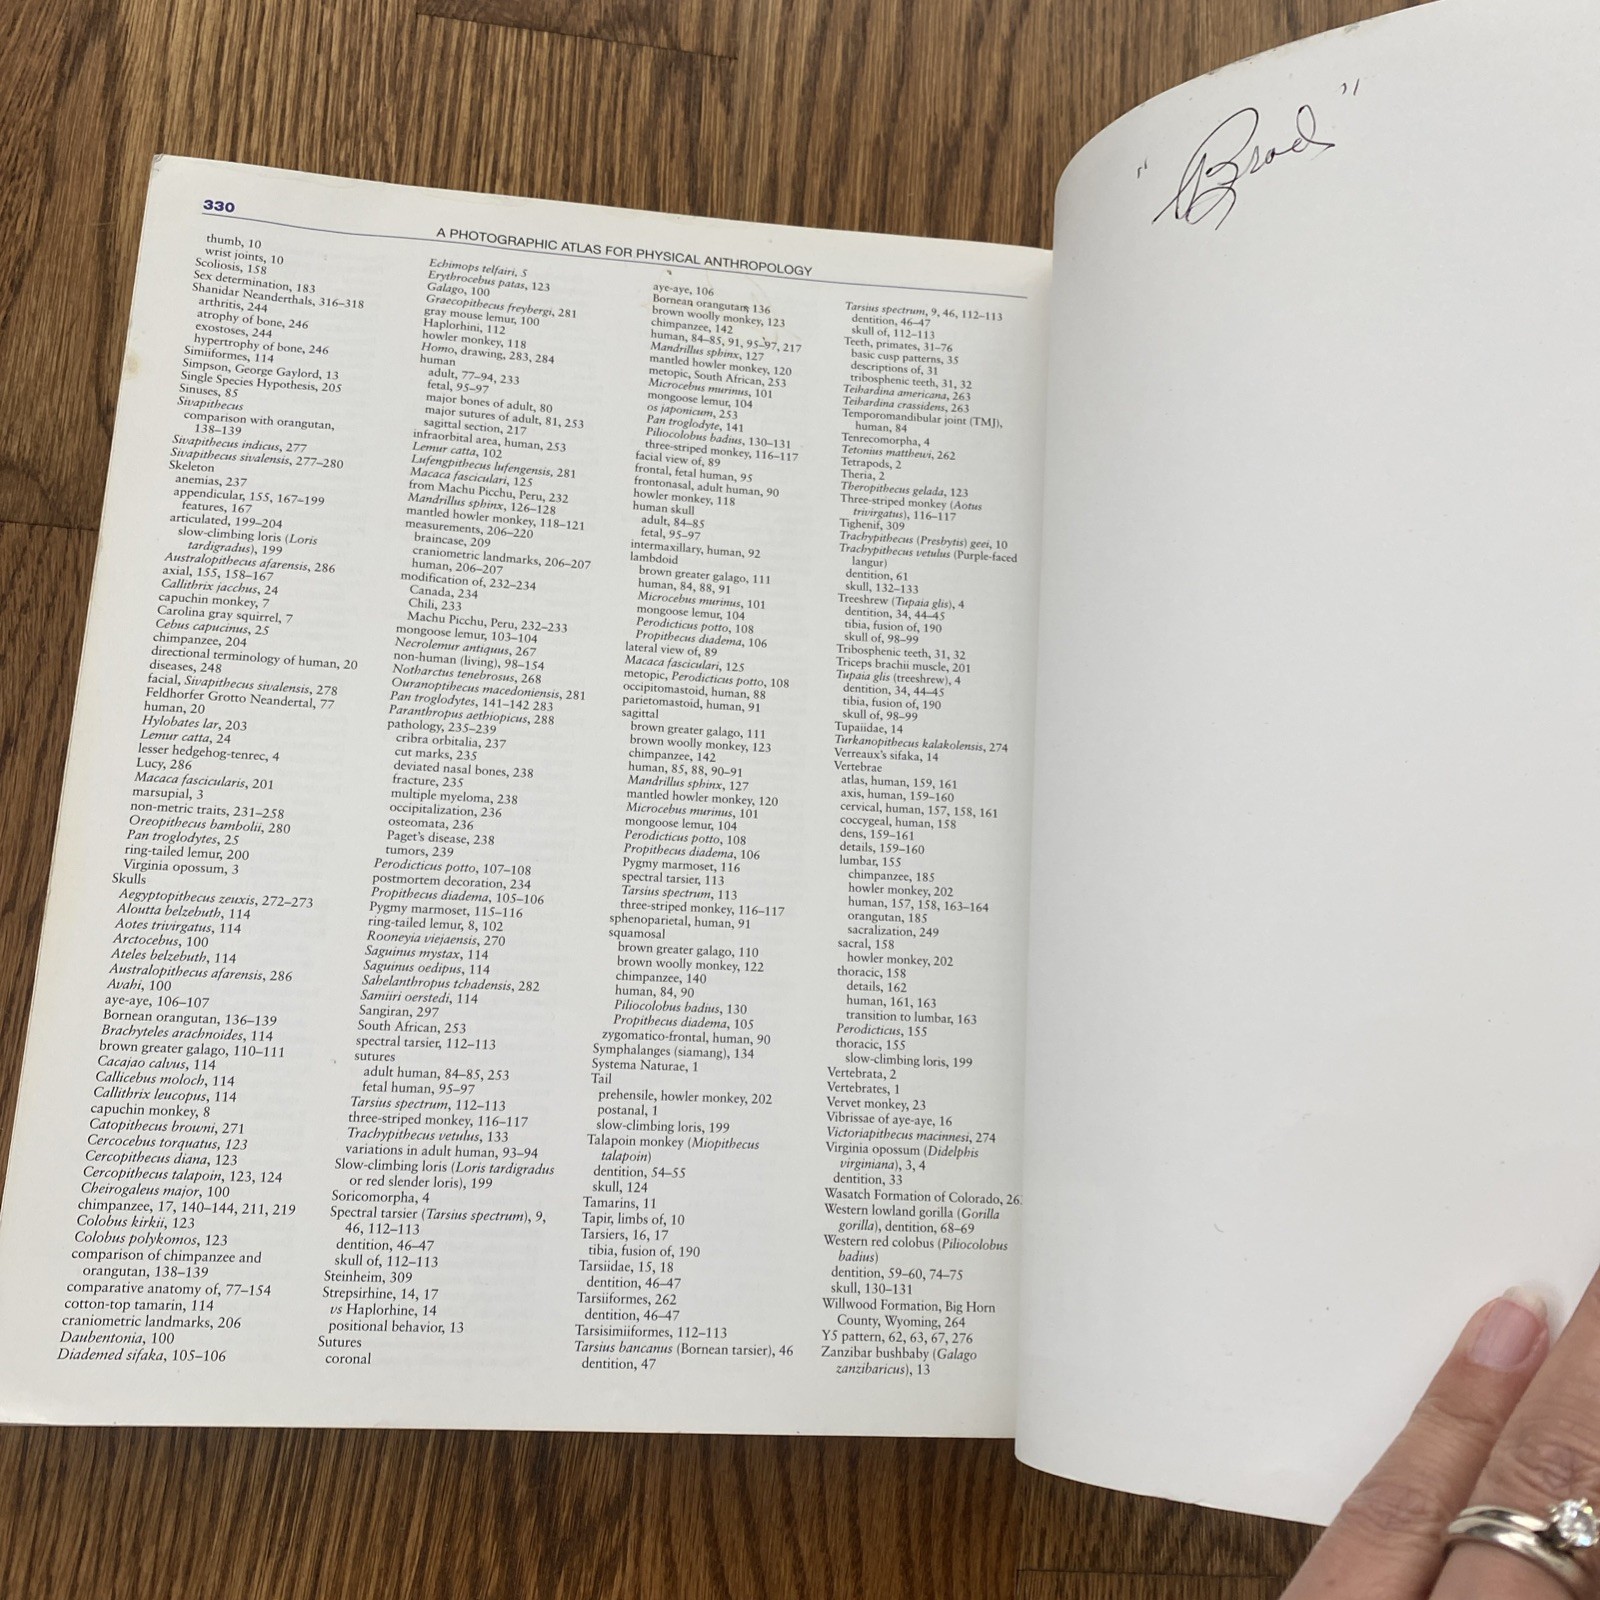 330
A PHOTOGRAPHIC ATLAS FOR PHYSICAL ANTHROPOLOGY
thumb, 10
wrist joints, 10
Scoliosis, 158
Sex determination, 183
Shanidar Neanderthals, 316–318
arthritis, 244
atrophy of bone, 246
exostoses, 244
hypertrophy of bone, 246
Simiiformes, 114
Simpson, George Gaylord, 13
Single Species Hypothesis, 205
Sinuses, 85
Sivapithecus
comparison with orangutan,
138–139
Sivapithecus indicus, 277
Sivapithecus sivalensis, 277–280
Skeleton
anemias, 237
appendicular, 155, 167–199
features, 167
articulated, 199–204
slow-climbing loris (Loris
tardigradus), 199
Australopithecus afarensis, 286
axial, 155, 158–167
Callithrix jacchus, 24
capuchin monkey, 7
Carolina gray squirrel, 7
Cebus capucinus, 25
chimpanzee, 204
directional terminology of human, 20
diseases, 248
facial, Sivapithecus sivalensis, 278
Feldhorfer Grotto Neandertal, 77
human, 20
Hylobates lar, 203
Lemur catta, 24
lesser hedgehog-tenrec, 4
Lucy, 286
Macaca fascicularis, 201
marsupial, 3
non-metric traits, 231–258
Oreopithecus bambolii, 280
Pan troglodytes, 25
ring-tailed lemur, 200
Virginia opossum, 3
Skulls
Aegyptopithecus zeuxis, 272–273
Aloutta belzebuth, 114
Aotes trivirgatus, 114
Arctocebus, 100
Ateles belzebuth, 114
Australopithecus afarensis, 286
Avahi, 100
aye-aye, 106–107
Bornean orangutan, 136–139
Brachyteles arachnoides, 114
brown greater galago, 110–111
Cacajao calvus, 114
Callicebus moloch, 114
Callithrix leucopus, 114
capuchin monkey, 8
Catopithecus browni, 271
Cercocebus torquatus, 123
Cercopithecus diana, 123
Cercopithecus talapoin, 123, 124
Cheirogaleus major, 100
chimpanzee, 17, 140–144, 211, 219
Colobus kirkii, 123
Colobus polykomos, 123
comparison of chimpanzee and
orangutan, 138–139
comparative anatomy of, 77–154
cotton-top tamarin, 114
craniometric landmarks, 206
Daubentonia, 100
Diademed sifaka, 105–106
Echimops telfairi, 5
Erythrocebus patas, 123
Galago, 100
Graecopithecus freybergi, 281
gray mouse lemur, 100
Haplorhini, 112
howler monkey, 118
Homo, drawing, 283, 284
human
adult, 77–94, 233
fetal, 95–97
major bones of adult, 80
major sutures of adult, 81, 253
sagittal section, 217
infraorbital area, human, 253
Lemur catta, 102
Lufengpithecus lufengensis, 281
Macaca fasciculari, 125
from Machu Picchu, Peru, 232
Mandrillus sphinx, 126–128
mantled howler monkey, 118–121
measurements, 206–220
braincase, 209
craniometric landmarks, 206–207
human, 206–207
modification of, 232–234
Canada, 234
Chili, 233
Machu Picchu, Peru, 232–233
mongoose lemur, 103–104
Necrolemur antiquus, 267
non-human (living), 98–154
Notharctus tenebrosus, 268
Ouranoptihecus macedoniensis, 281
Pan troglodytes, 141–142 283
Paranthropus aethiopicus, 288
pathology, 235–239
cribra orbitalia, 237
cut marks, 235
deviated nasal bones, 238
fracture, 235
multiple myeloma, 238
occipitalization, 236
osteomata, 236
Paget's disease, 238
tumors, 239
Perodicticus potto, 107–108
postmortem decoration, 234
Propithecus diadema, 105–106
Pygmy marmoset, 115–116
ring-tailed lemur, 8, 102
Rooneyia viejaensis, 270
Saguinus mystax, 114
Saguinus oedipus, 114
Sahelanthropus tchadensis, 282
Samiiri oerstedi, 114
Sangiran, 297
South African, 253
spectral tarsier, 112–113
sutures
adult human, 84–85, 253
fetal human, 95–97
Tarsius spectrum, 112–113
three-striped monkey, 116–117
Trachypithecus vetulus, 133
variations in adult human, 93–94
Slow-climbing loris (Loris tardigradus
or red slender loris), 199
Soricomorpha, 4
Spectral tarsier (Tarsius spectrum), 9,
46, 112–113
dentition, 46–47
skull of, 112–113
Steinheim, 309
Strepsirhine, 14, 17
vs Haplorhine, 14
positional behavior, 13
Sutures
coronal
aye-aye, 106
Bornean orangutan, 136
brown woolly monkey, 123
chimpanzee, 142
human, 84–85, 91, 95–97, 217
Mandrillus sphinx, 127
mantled howler monkey, 120
metopic, South African, 253
Microcebus murinus, 101
mongoose lemur, 104
os japonicum, 253
Pan troglodyte, 141
Piliocolobus badius, 130–131
three-striped monkey, 116–117
facial view of, 89
frontal, fetal human, 95
frontonasal, adult human, 90
howler monkey, 118
human skull
adult, 84–85
fetal, 95–97
intermaxillary, human, 92
lambdoid
brown greater galago, 111
human, 84, 88, 91
Microcebus murinus, 101
mongoose lemur, 104
Perodicticus potto, 108
Propithecus diadema, 106
lateral view of, 89
Macaca fasciculari, 125
metopic, Perodicticus potto, 108
occipitomastoid, human, 88
parietomastoid, human, 91
sagittal
brown greater galago, 111
brown woolly monkey, 123
chimpanzee, 142
human, 85, 88, 90–91
Mandrillus sphinx, 127
mantled howler monkey, 120
Microcebus murinus, 101
mongoose lemur, 104
Perodicticus potto, 108
Propithecus diadema, 106
Pygmy marmoset, 116
spectral tarsier, 113
Tarsius spectrum, 113
three-striped monkey, 116–117
sphenoparietal, human, 91
squamosal
brown greater galago, 110
brown woolly monkey, 122
chimpanzee, 140
human, 84, 90
Piliocolobus badius, 130
Propithecus diadema, 105
zygomatico-frontal, human, 90
Symphalanges (siamang), 134
Systema Naturae, 1
Tail
prehensile, howler monkey, 202
postanal, 1
slow-climbing loris, 199
Talapoin monkey (Miopithecus
talapoin)
dentition, 54–55
skull, 124
Tamarins, 11
Tapir, limbs of, 10
Tarsiers, 16, 17
tibia, fusion of, 190
Tarsiidae, 15, 18
dentition, 46–47
Tarsiiformes, 262
dentition, 46–47
Tarsisimiiformes, 112–113
Tarsius bancanus (Bornean tarsier), 46
dentition, 47
Tarsius spectrum, 9, 46, 112–113
dentition, 46–47
skull of, 112–113
Teeth, primates, 31–76
basic cusp patterns, 35
descriptions of, 31
tribosphenic teeth, 31, 32
Teihardina americana, 263
Teihardina crassidens, 263
Temporomandibular joint (TMJ),
human, 84
Tenrecomorpha, 4
Tetonius matthewi, 262
Tetrapods, 2
Theria, 2
Theropithecus gelada, 123
Three-striped monkey (Aotus
trivirgatus), 116–117
Tighenif, 309
Trachypithecus (Presbytis) geei, 10
Trachypithecus vetulus (Purple-faced
langur)
dentition, 61
skull, 132–133
Treeshrew (Tupaia glis), 4
dentition, 34, 44–45
tibia, fusion of, 190
skull of, 98–99
Tribosphenic teeth, 31, 32
Triceps brachii muscle, 201
Tupaia glis (treeshrew), 4
dentition, 34, 44–45
tibia, fusion of, 190
skull of, 98–99
Tupaiidae, 14
Turkanopithecus kalakolensis, 274
Verreaux's sifaka, 14
Vertebrae
atlas, human, 159, 161
axis, human, 159–160
cervical, human, 157, 158, 161
coccygeal, human, 158
dens, 159–161
details, 159–160
lumbar, 155
chimpanzee, 185
howler monkey, 202
human, 157, 158, 163–164
orangutan, 185
sacralization, 249
sacral, 158
howler monkey, 202
thoracic, 158
details, 162
human, 161, 163
transition to lumbar, 163
Perodicticus, 155
thoracic, 155
slow-climbing loris, 199
Vertebrata, 2
Vertebrates, 1
Vervet monkey, 23
Vibrissae of aye-aye, 16
Victoriapithecus macinnesi, 274
Virginia opossum (Didelphis
virginiana), 3, 4
dentition, 33
Wasatch Formation of Colorado,
Western lowland gorilla (Gorilla
gorilla), dentition, 68–69
Western red colobus (Piliocolobus
badius)
dentition, 59–60, 74–75
skull, 130–131
Willwood Formation, Big Horn
County, Wyoming, 264
Y5 pattern, 62, 63, 67, 276
Zanzibar bushbaby (Galago
zanzibaricus), 13
"Brad"